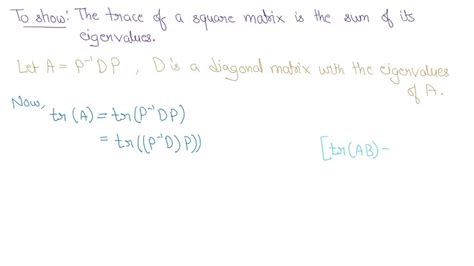 To show: The trace of a square matrix is the sum of its
eigenvalues.
Let A = P⁻¹DP , D is a diagonal matrix with the eigenvalues
of A.
Now,
tr(A) = tr(P⁻¹DP)
= tr((P⁻¹D)P)) [tr(AB) =